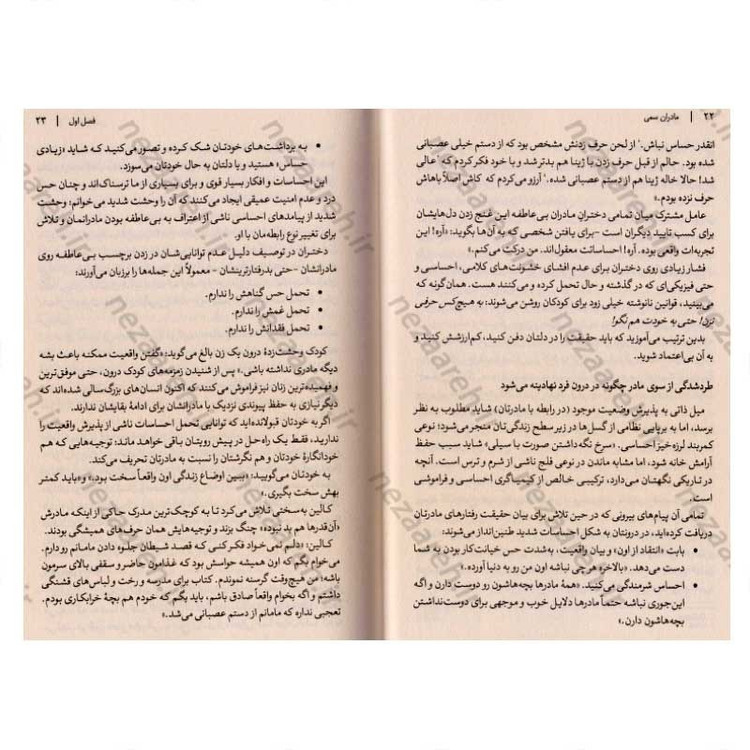 ۲۲ | مادران سمی
انقدر حساس نباش.' از لحن حرف زدنش مشخص بود که از دستم خیلی عصبانی
شده بود. حالم از قبل حرف زدن با ژینا هم بدتر شد و با خود فکر کردم که 'عالی
شد! حالا خاله ژینا هم از دستم عصبانی شده.' آرزو می‌کردم که کاش اصلاً باهاش
حرف نزده بودم.»
عامل مشترک میان تمامی دختران مادران بی‌عاطفه این غنج زدن دل‌هایشان
برای کسب تایید دیگران است –برای یافتن شخصی که به آن‌ها بگوید: «آره! این
تجربه‌ات واقعی بوده. آره! احساساتت معقول‌اند. من درکت می‌کنم.»
فشار زیادی روی دختران برای عدم افشای خشونت‌های کلامی، احساسی و
حتی فیزیکی‌ای که در گذشته و حال تحمل کرده و می‌کنند هست. همان‌گونه که
می‌بینید، قوانین نانوشته خیلی زود برای کودکان روشن می‌شوند: به هیچ‌کس حرفی
نزن! حتی به خودت هم نگو!
بدین ترتیب می‌آموزید که باید حقیقت را در دلتان دفن کنید، کم‌ارزشش کنید و
به آن بی‌اعتماد شوید.
طردشدگی از سوی مادر چگونه در درون فرد نهادینه می‌شود
میل ذاتی به پذیرش وضعیت موجود (در رابطه با مادرتان) شاید مطلوب به نظر
برسد، اما به برپایی نظامی از گسل‌ها در زیر سطح زندگی‌تان منجر می‌شود؛ نوعی
کمربند لرزه‌خیز احساسی. «سرخ نگه داشتن صورت با سیلی» شاید سبب حفظ
آرامش خانه شود، اما مشابه ماندن در نوعی فلج ناشی از شرم و ترس است. آنچه
در تاریکی نگهتان می‌دارد، ترکیبی خالص از کیمیاگری احساسی و فراموشی
است.
تمامی آن پیام‌های بیرونی که در حین تلاش برای بیان حقیقت رفتارهای مادرتان
دریافت کرده‌اید، در درونتان به شکل احساسات شدید طنین‌انداز می‌شوند:
• بابت «انتقاد از اون» و بیان واقعیت، به‌شدت حس خیانت‌کار بودن به شما
دست می‌دهد. «بالاخره هرچی نباشه اون من رو به دنیا آورده.»
• احساس شرمندگی می‌کنید. «همهٔ مادرها بچه‌هاشون رو دوست دارن و اگه
این‌جوری نباشه حتماً مادرها دلایل خوب و موجهی برای دوست‌نداشتن
بچه‌هاشون دارن.»
فصل اول | ۲۳
• به برداشت‌های خودتان شک کرده و تصور می‌کنید که شاید «زیادی
حساس» هستید و یا دلتان به حال خودتان می‌سوزد.
این احساسات و افکار بسیار قوی و برای بسیاری از ما ترسناک‌اند و چنان حس
درد و عدم امنیت عمیقی ایجاد می‌کنند که آن را وحشت شدید می‌خوانم؛ وحشت
شدید از پیامدهای احساسی ناشی از اعتراف به بی‌عاطفه بودن مادرانمان و تلاش
برای تغییر نوع رابطه‌مان با او.
دختران در توصیف دلیل عدم توانایی‌شان در زدن برچسب بی‌عاطفه روی
مادرانشان –حتی بدرفتارترینشان– معمولاً این جمله‌ها را برزبان می‌آورند:
• تحمل حس گناهش را ندارم.
• تحمل غمش را ندارم.
• تحمل فقدانش را ندارم.
کودک وحشت‌زدهٔ درون یک زن بالغ می‌گوید: «گفتن واقعیت ممکنه باعث بشه
دیگه مادری نداشته باشی.» پس از شنیدن زمزمه‌های کودک درون، حتی موفق‌ترین
و فهمیده‌ترین زنان نیز فراموش می‌کنند که اکنون انسان‌های بزرگ‌سالی شده‌اند که
دیگر نیازی به حفظ پیوندی نزدیک با مادرانشان برای ادامهٔ بقایشان ندارند.
اگر به خودتان قبولانده‌اید که توانایی تحمل احساسات ناشی از پذیرش واقعیت را
ندارید، فقط یک راه‌حل در پیش رویتان باقی خواهد ماند: توجیه‌هایی که هم
خودانگارهٔ خودتان و هم نگرشتان را نسبت به مادرتان تحریف می‌کند.
به خودتان می‌گویید: «ببین اوضاع زندگی اون واقعاً سخت بود.» و «باید کمتر
بهش سخت بگیری.»
کالین به‌سختی تلاش می‌کرد تا به کوچک‌ترین مدرک حاکی از اینکه مادرش
«آن‌قدرها هم بد نبوده» چنگ بزند و توجیه‌هایش همان حرف‌های همیشگی بودند.
کالین: «دلم نمی‌خواد فکر کنی که قصد شیطان جلوه دادن مامانم رو دارم.
می‌خوام بگم که اون همیشه حواسش بود که غذامون حاضر و سقفی بالای سرمون
باشه؛ من هیچ‌وقت گرسنه نموندم. کتاب برای مدرسه و رخت و لباس‌های قشنگی
داشتم و اگه بخوام واقعاً صادق باشم، باید بگم که خودم هم بچهٔ خرابکاری بودم.
تعجبی نداره که مامانم از دستم عصبانی می‌شد.»
nezaareh.ir